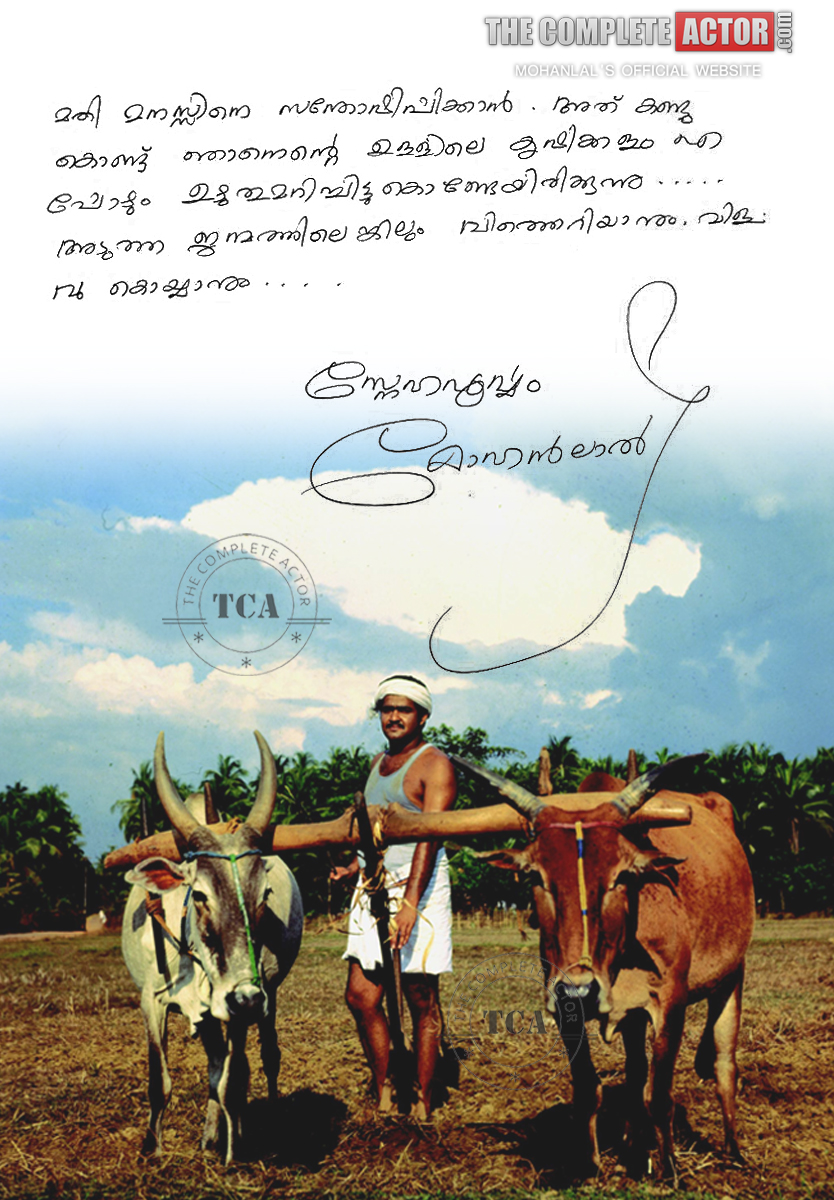 THE COMPLETE ACTOR .com
MOHANLAL'S OFFICIAL WEBSITE
മതി മനസ്സിനെ സന്തോഷിപ്പിക്കാൻ. അത് കണ്ടു
കൊണ്ട് ഞാനെന്റെ ഉള്ളിലെ കൃഷിക്കളം എ
പ്പോഴും ഉഴുതുമറിച്ചിട്ടുകൊണ്ടേയിരിക്കുന്നു.....
അടുത്ത ജന്മത്തിലെങ്കിലും വിത്തെറിയാനും. വിള
വു കൊയ്യാനും.....
സ്നേഹപൂർവ്വം
മോഹൻലാൽ
THE COMPLETE ACTOR
TCA
TCA